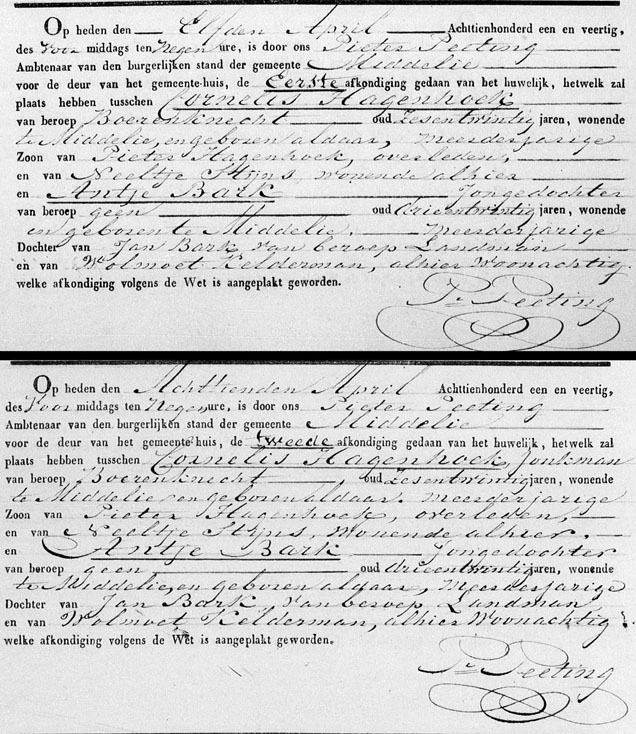 Op heden den Elfden April Achttienhonderd een en veertig,
des Voor middags ten Negen ure, is door ons Pieter Peeting
Ambtenaar van den burgerlijken stand der gemeente Middelie
voor de deur van het gemeente-huis, de Eerste afkondiging gedaan van het huwelijk, hetwelk zal
plaats hebben tusschen Cornelis Hagenhoek
van beroep Boerenknecht oud Zesentwintig jaren, wonende
te Middelie, en geboren aldaar, Meerderjarige
Zoon van Pieter Hagenhoek, overleden,
en van Neeltje Stijns, wonende alhier
en Antje Bark Jongedochter
van beroep geen oud drieentwintig jaren, wonende
en geboren te Middelie. Meerderjarige
Dochter van Jan Bark van beroep Landman
en van Wolmoet Kelderman, alhier Woonachtig.
welke afkondiging volgens de Wet is aangeplakt geworden.
Pr. Peeting
Op heden den Achttienden April Achttienhonderd een en veertig,
des Voor middags ten Negen ure, is door ons Pieter Peeting
Ambtenaar van den burgerlijken stand der gemeente Middelie
voor de deur van het gemeente-huis, de tweede afkondiging gedaan van het huwelijk, hetwelk zal
plaats hebben tusschen Cornelis Hagenhoek, Jonkman
van beroep Boerenknecht, oud Zesentwintig jaren, wonende
te Middelie en geboren aldaar. Meerderjarige
Zoon van Pieter Hagenhoek, overleden,
en van Neeltje Stijns, wonende alhier.
en Antje Bark Jongedochter
van beroep geen oud drieentwintig jaren, wonende
te Middelie, en geboren aldaar, Meerderjarige
Dochter van Jan Bark, van beroep Landman
en van Wolmoet Kelderman, alhier Woonachtig.
welke afkondiging volgens de Wet is aangeplakt geworden.
Pr. Peeting